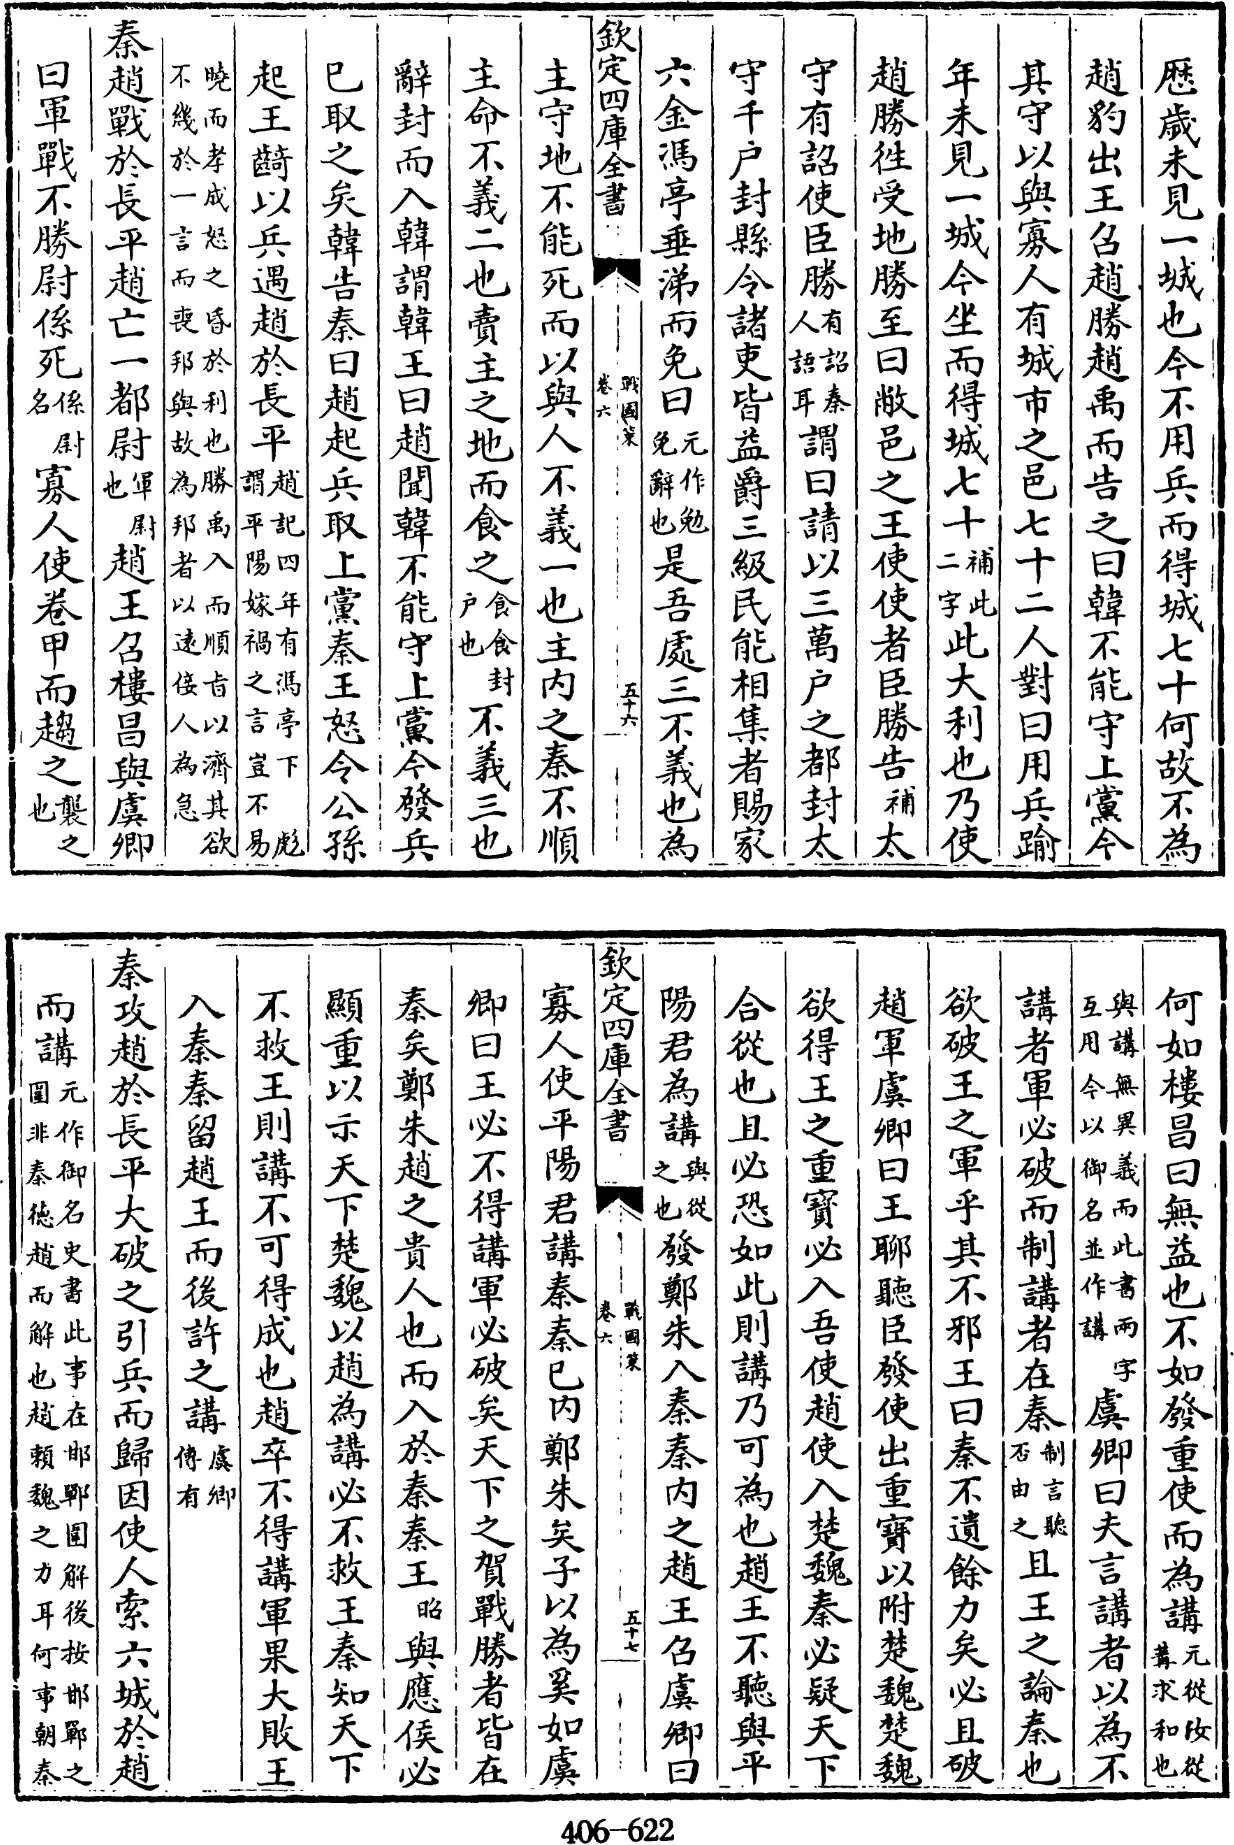 歴歳未見一城也今不用兵而得城七十何故不為
趙豹出王召趙勝趙禹而告之曰韓不能守上黨今
其守以與寡人有城市之邑七十二人對曰用兵踰
年未見一城今坐而得城七十補此二字此大利也乃使
趙勝徃受地勝至曰敝邑之王使使者臣勝告補太
守有詔使臣勝有詔秦人語耳謂曰請以三萬户之都封太
守千户封縣令諸吏皆益爵三級民能相集者賜家
六金馮亭垂涕而免曰元作勉免辭也是吾處三不義也為
欽定四庫全書
戰國策
卷六
五十六
主守地不能死而以與人不義一也主内之秦不順
主命不義二也賣主之地而食之食食封户也不義三也
辭封而入韓謂韓王曰趙聞韓不能守上黨今發兵
已取之矣韓告秦曰趙起兵取上黨秦王怒令公孫
起王齮以兵遇趙於長平趙記四年有馮亭下彪謂平陽嫁禍之言豈不易
曉而孝成怒之昏於利也勝禹入而順㫖以濟其欲不幾於一言而喪邦與故為邦者以逺佞人為急
秦趙戰於長平趙亡一都尉軍尉也趙王召樓昌與虞卿
曰軍戰不勝尉係死係尉名寡人使卷甲而趨之襲之也
何如樓昌曰無益也不如發重使而為講元從汝從冓求和也
與講無異義而此書兩字互用今以御名並作講虞卿曰夫言講者以為不
講者軍必破而制講者在秦制言聽否由之且王之論秦也
欲破王之軍乎其不邪王曰秦不遺餘力矣必且破
趙軍虞卿曰王聊聽臣發使出重寶以附楚魏楚魏
欲得王之重寶必入吾使趙使入楚魏秦必疑天下
合從也且必恐如此則講乃可為也趙王不聽與平
陽君為講與從之也發鄭朱入秦秦内之趙王召虞卿曰
欽定四庫全書
戰國策
卷六
五十七
寡人使平陽君講秦秦已内鄭朱矣子以為奚如虞
卿曰王必不得講軍必破矣天下之賀戰勝者皆在
秦矣鄭朱趙之貴人也而入於秦秦王昭與應侯必
顯重以示天下楚魏以趙為講必不救王秦知天下
不救王則講不可得成也趙卒不得講軍果大敗王
入秦秦留趙王而後許之講虞卿傳有
秦攻趙於長平大破之引兵而歸因使人索六城於趙
而講元作御名史書此事在邯鄲圍解後按邯鄲之圍非秦徳趙而解也趙頼魏之力耳何事朝秦
406-622